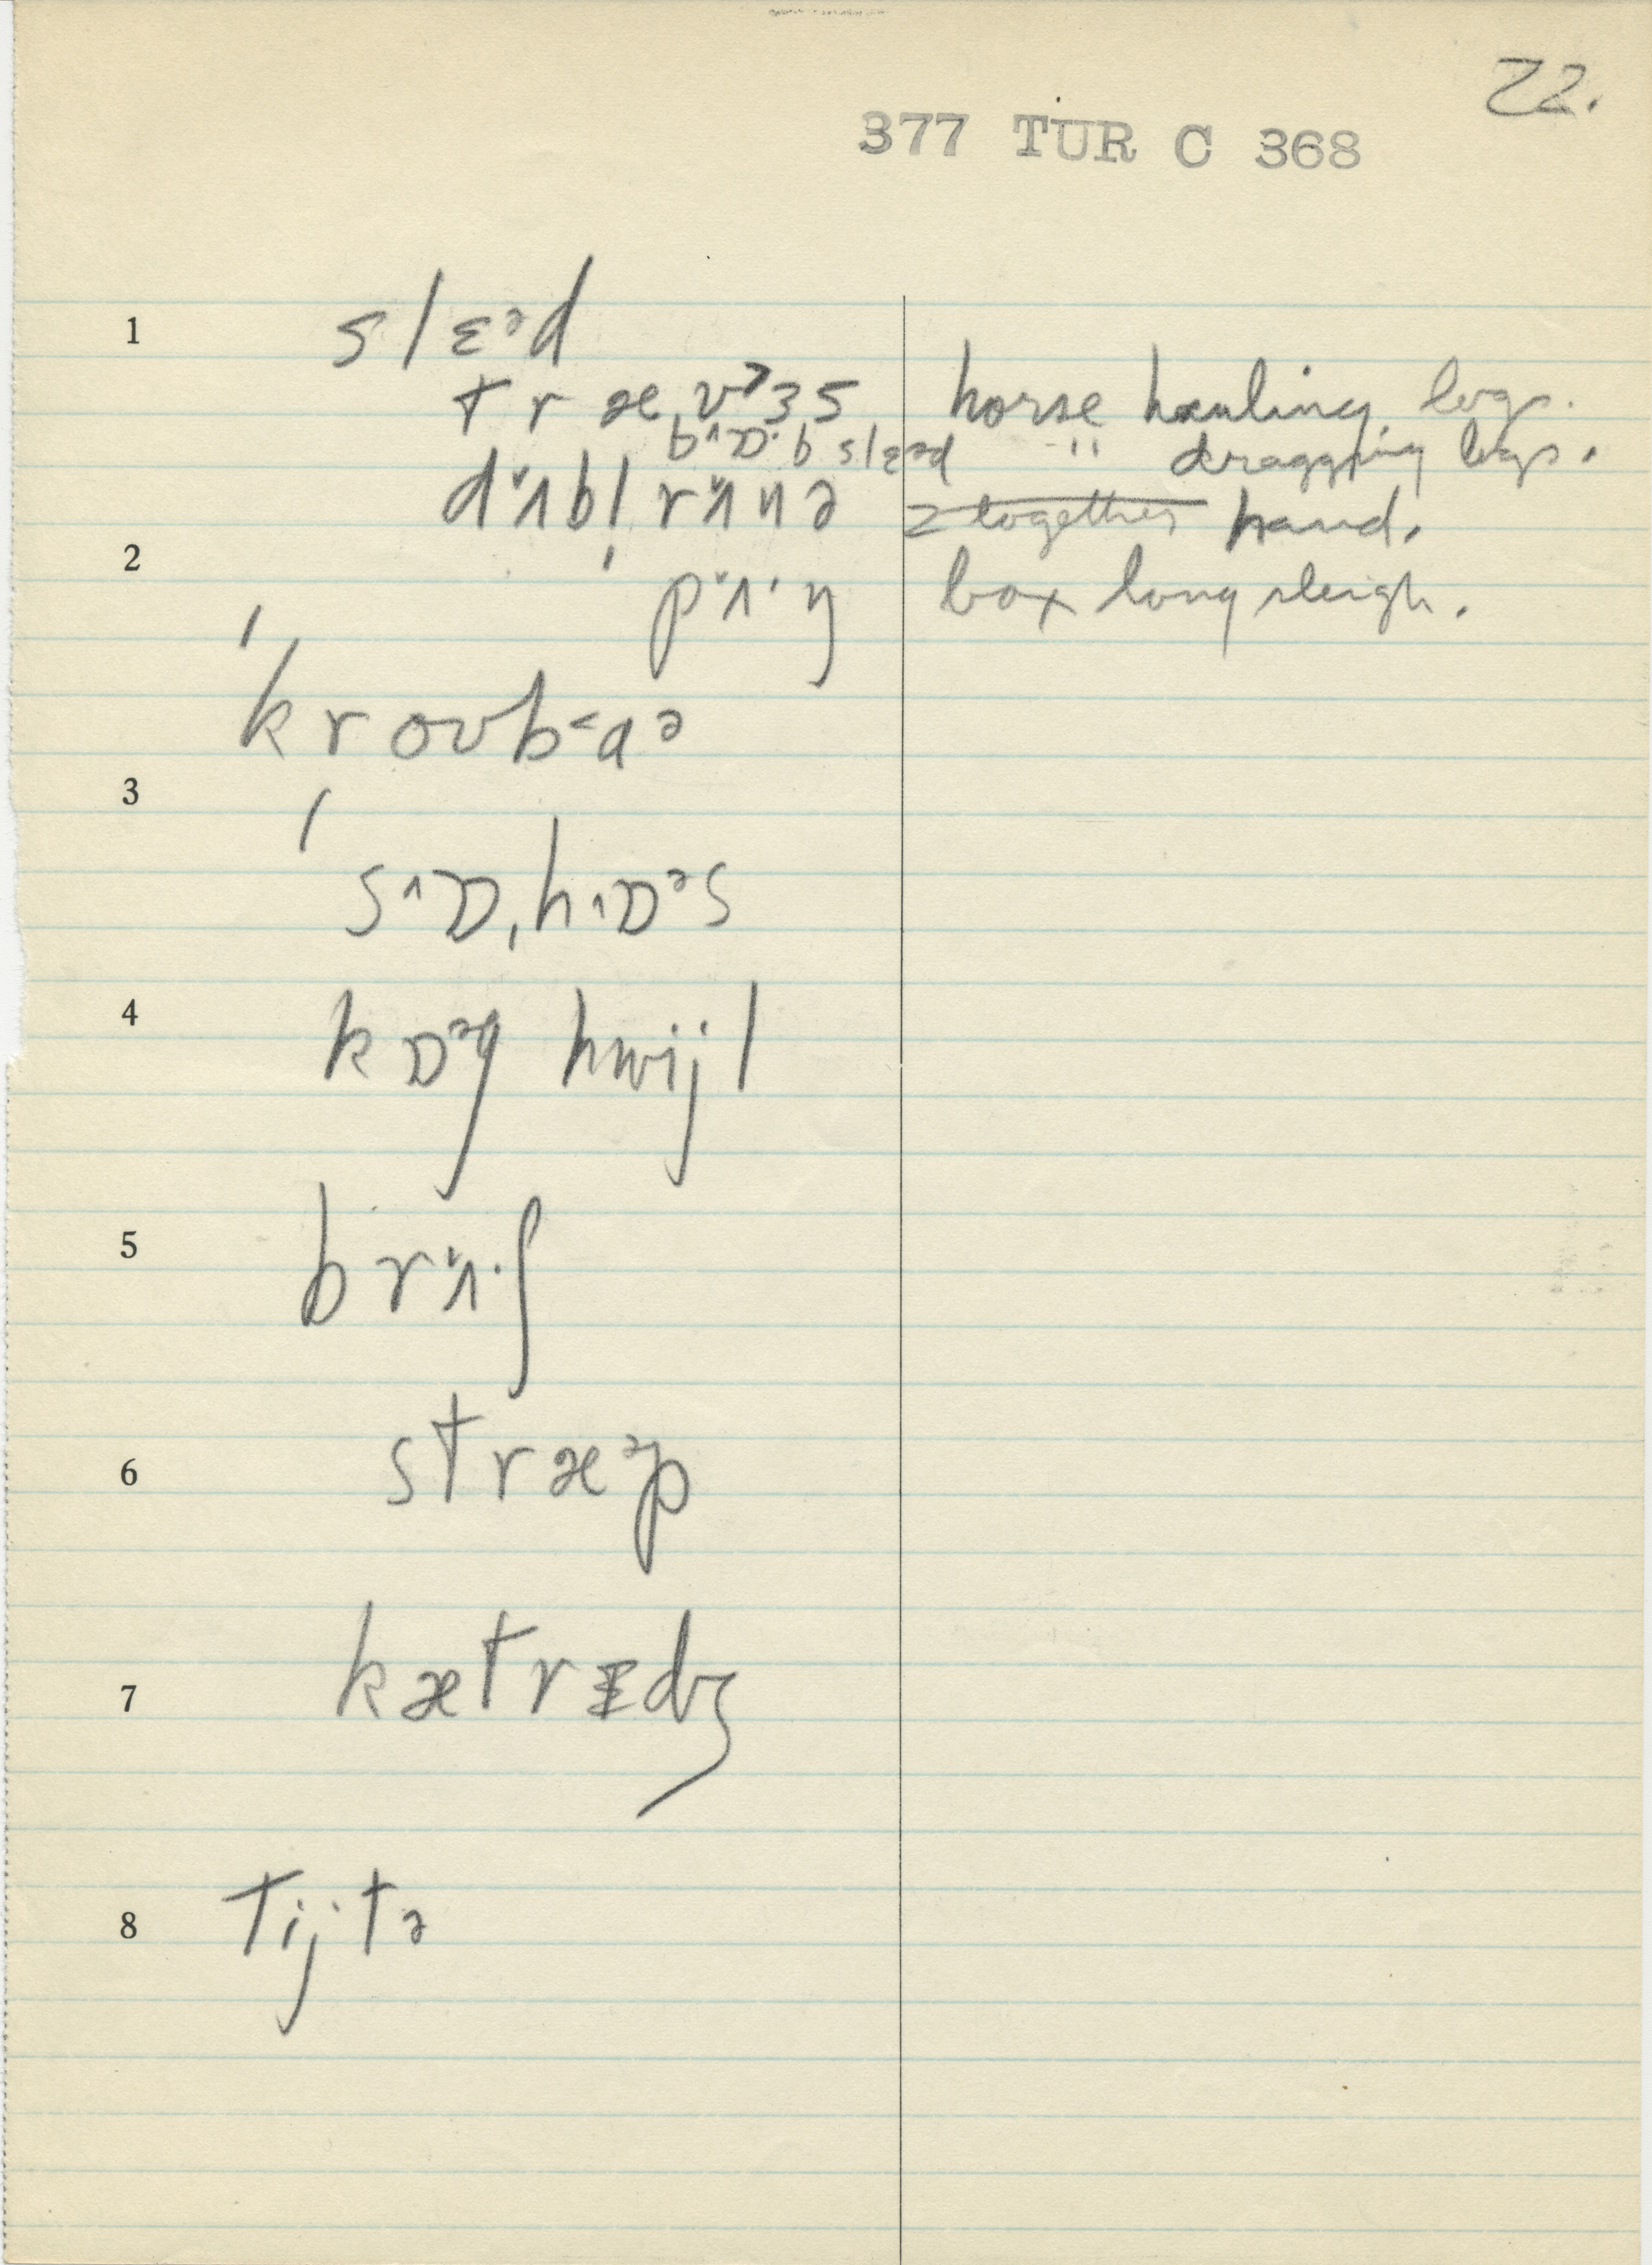 22.
377 TUR C 368
1 slɛᵊd
træˌvɜ˞s horse hauling logs.
b˄ɒ·b slɛᵊd " dragging logs.
d˅ʌbl̩ r˅ʌnə 2 together hand.
2 p˅ʌ·ŋ box long sleigh.
ˈkroʊb˂aə
3
ˈs˄ɒˌh˄ɒᵊs
4 kɒᵊg hwijl
5 br˅ʌ·ʃ
6 stræᵊp
7 kætrɪdʒ
8 tij·tə